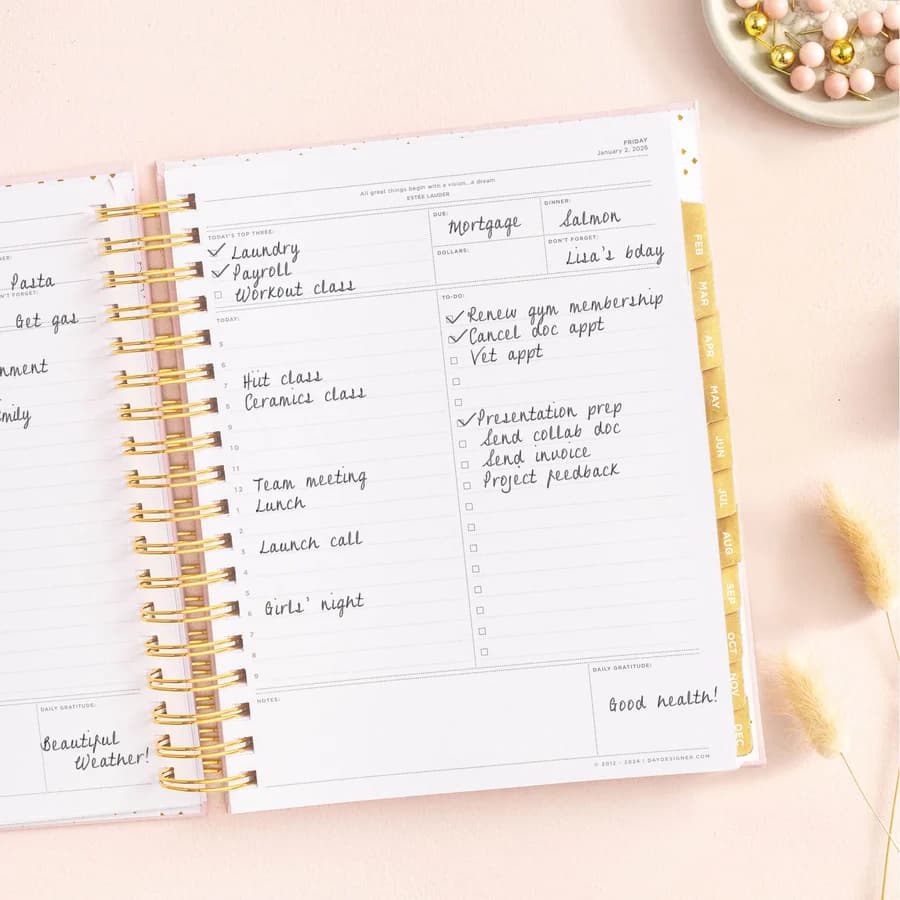 NER:
Pasta
N'T FORGET:
Get gas
nment
mily
DAILY GRATITUDE:
Beautiful
Weather!
FRIDAY
January 2, 2026
All great things begin with a vision...a dream.
ESTÉE LAUDER
TODAY'S TOP THREE:
Laundry
Payroll
Workout class
DUE:
Mortgage
DINNER:
Salmon
DOLLARS:
DON'T FORGET:
Lisa's bday
TODAY:
5
6
7 Hiit class
8 Ceramics class
9
10
11
12 Team meeting
1 Lunch
2
3 Launch call
4
5
6 Girls' night
7
8
9
TO-DO:
Renew gym membership
Cancel doc appt
Vet appt
Presentation prep
Send collab doc
Send invoice
Project feedback
NOTES:
DAILY GRATITUDE:
Good health!
© 2012 - 2024 | DAYDESIGNER.COM
FEB
MAR
APR
MAY
JUN
JUL
AUG
SEP
OCT
NOV
DEC